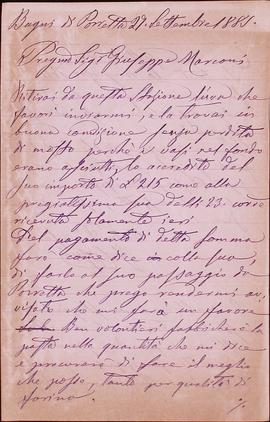 Bagni di Porretta 29 Settembre 1883.
Pregmo Sigr Giuseppe Marconi
Ritirai da questa Stazione l'uva che
favorì inviarmi, e la trovai in
buona condizione senza perdita
di mosto perchè i vasi nel fondo
erano asciutti, lo accredito del
suo importo di L. 215 come alla
pregiatissima sua delli 23. corr.
ricevuta solamente ieri
Del pagamento di detta somma
farò come dice colla sua,
di farlo al suo passaggio da
Porretta che prego rendermi av,
visato che mi farà un favore
Ben volontieri fabbricherò la
pasta nella quantità che mi dice
e procurerò di fare il meglio
che posso, tanto per qualità di
farina